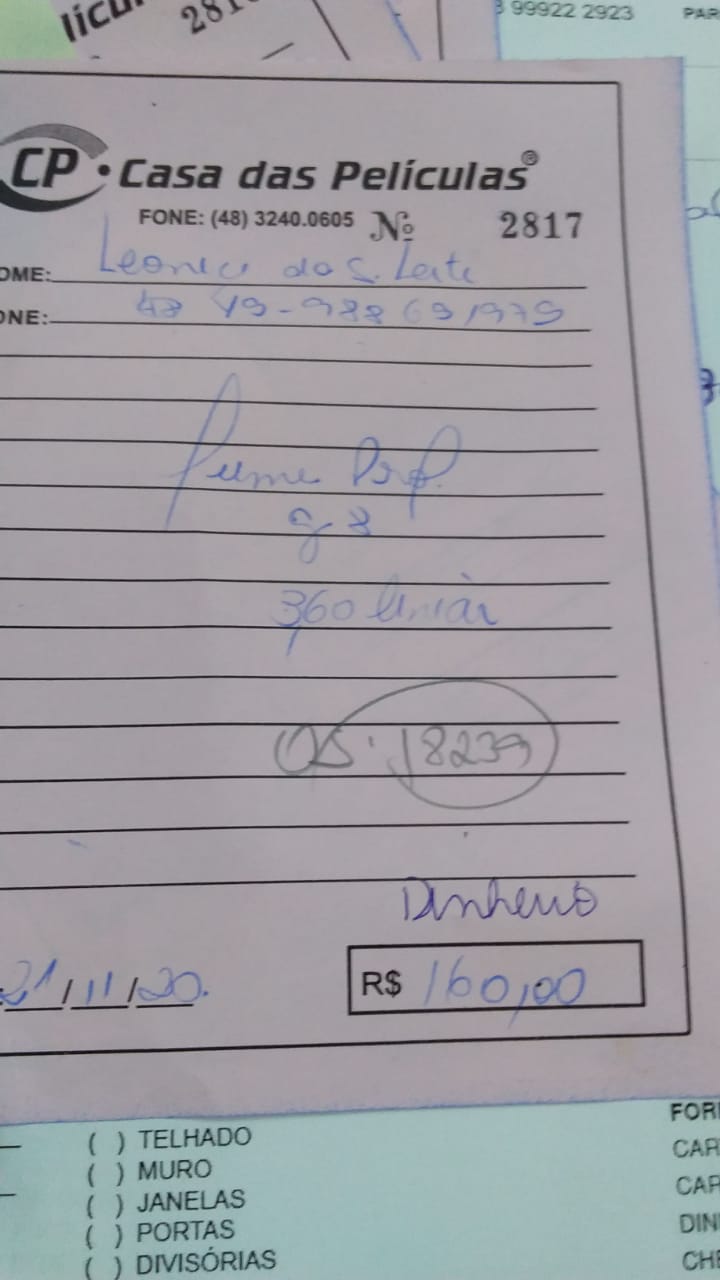 lícu
281
99922 2923
PAR
CP • Casa das Películas®
FONE: (48) 3240.0605 Nº 2817
OME: Leonice da S. Leite
ONE: 48 49-988 69 1979
fume Prof.
g 8
3,60 linear
OS: 18239
Dinheiro
21/11/20.
R$ 160,00
( ) TELHADO
( ) MURO
( ) JANELAS
( ) PORTAS
( ) DIVISÓRIAS
FOR
CAR
CAR
DIN
CH